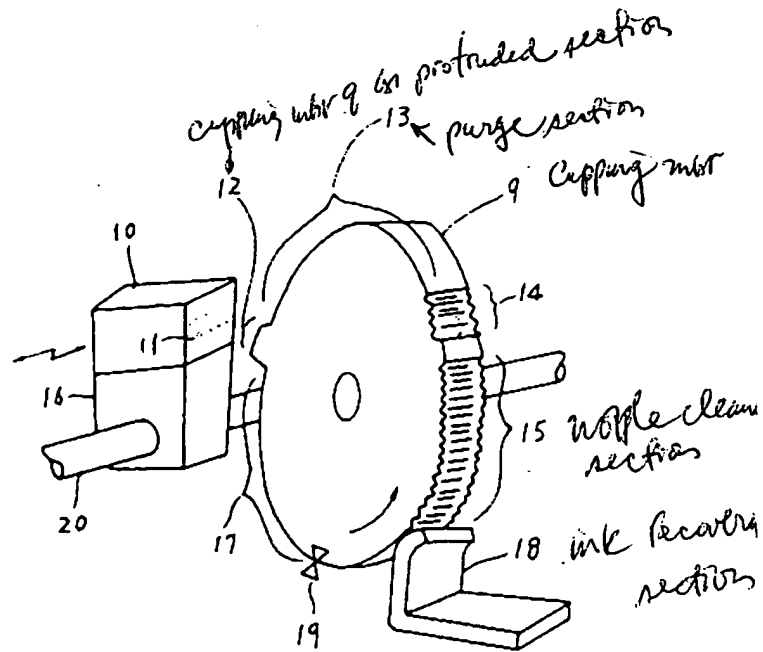 capping mbr 9 w protruded section
13 purge section
12
9 Capping mbr
10
14
11
16
15 nozzle clean
section
20
17
18 ink recover
section
19